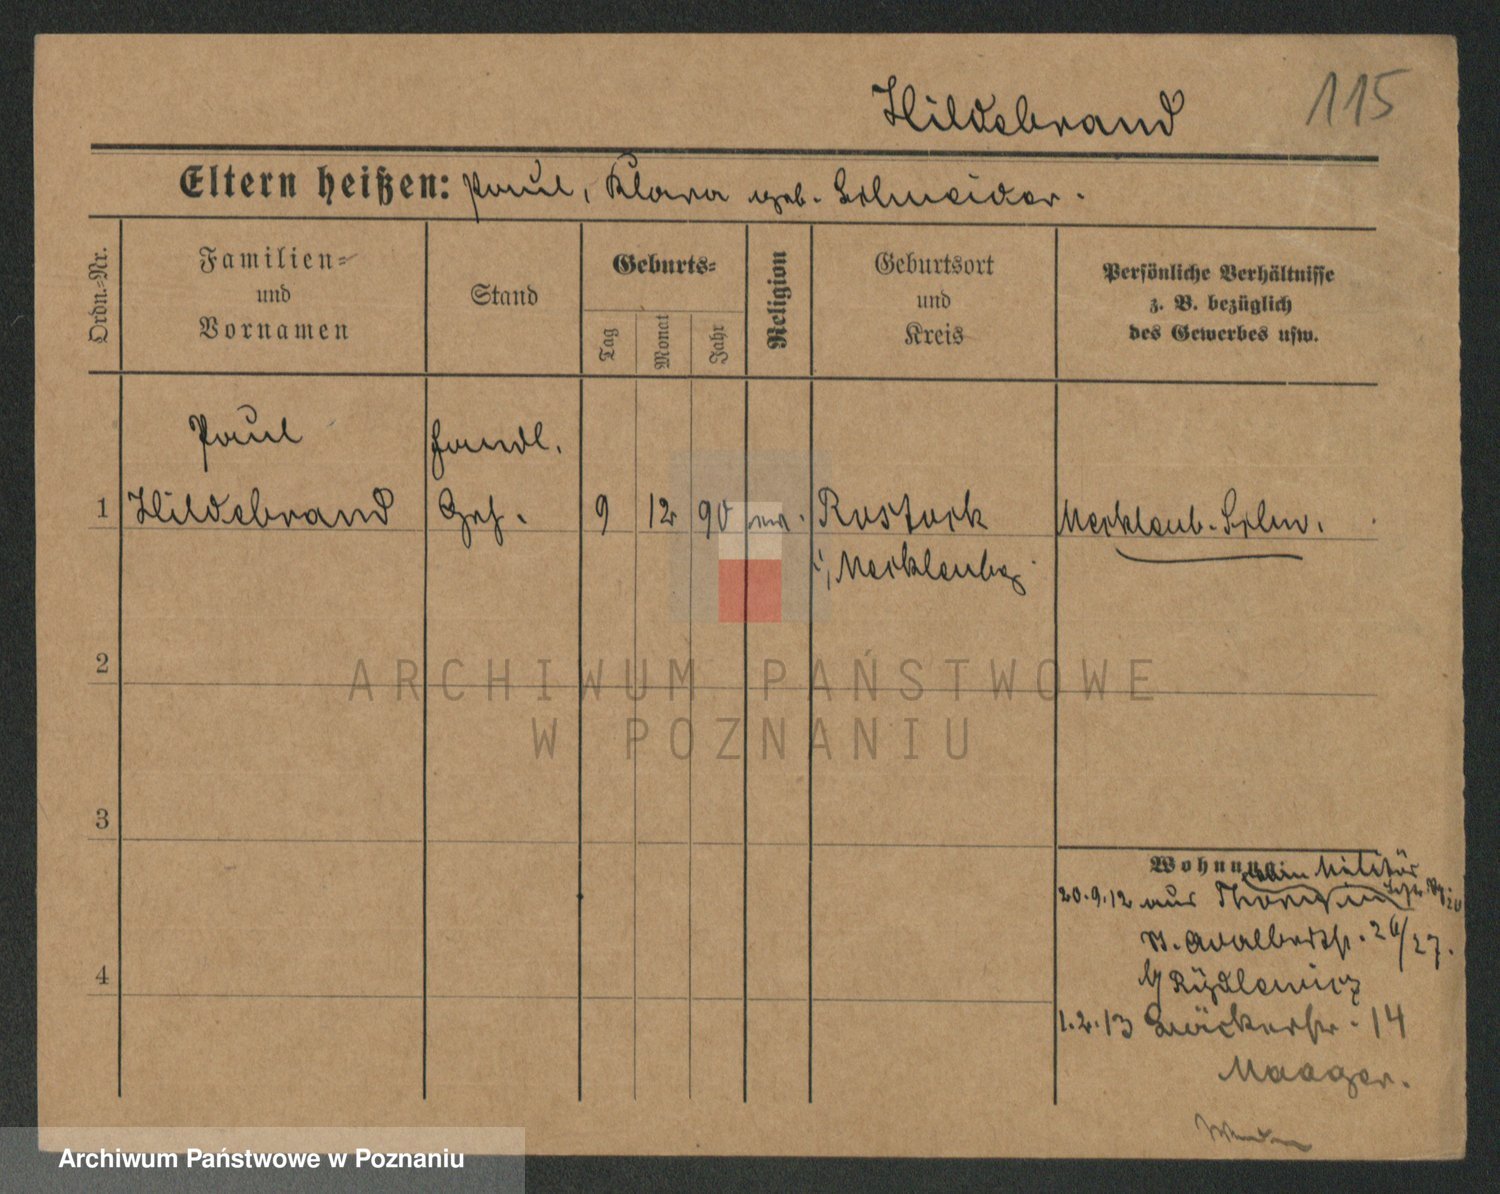 115
Hildebrand
Eltern heißen: Paul, Klara geb. Schneider.
Ordn.=Nr.
Familien=
und
Vornamen
Stand
Geburts=
Tag
Monat
Jahr
Religion
Geburtsort
und
Kreis
Persönliche Verhältnisse
z. B. bezüglich
des Gewerbes usw.
Paul
Handl.
1 Hildebrand Geh. 9 12 90 Rostock Mecklenb.-Schw.
i/ Mecklenbg
2
ARCHIWUM PAŃSTWOWE
W POZNANIU
3
Wohnung
Militär
20.9.12 aus Thorn
St. Adalbertstr. 26/27.
b/ Rydlewicz
4
1.2.13 Bäckerstr. 14
Maager.
Wenden
Archiwum Państwowe w Poznaniu